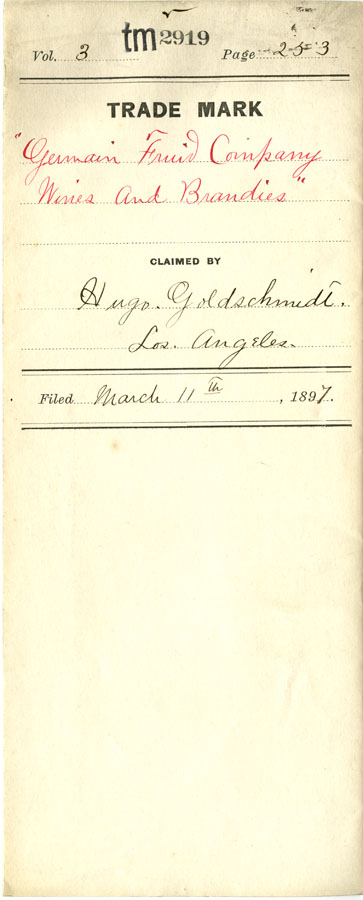 tm 2919
Vol. 3 Page 253
TRADE MARK
"Germain Fruid Company
Wines And Brandies"
CLAIMED BY
Hugo. Goldschmidt.
Los. Angeles.
Filed March 11th, 1897.